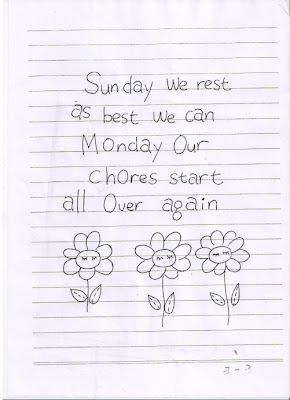 Sunday we rest
as best we can
Monday Our
chores start
all Over again